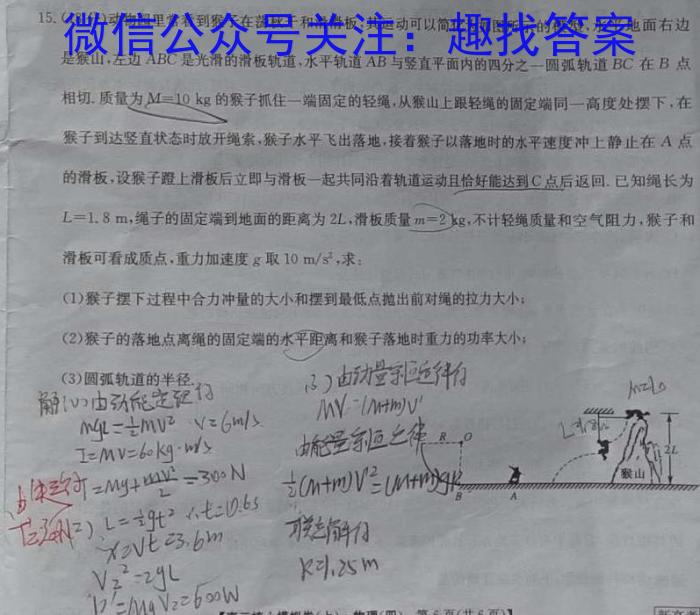 微信公众号关注：趣找答案
15.
动物园里常看到猴子在荡秋千和滑滑板,其运动可以简
地面右边
是猴山,左边 ABC 是光滑的滑板轨道,水平轨道 AB 与竖直平面内的四分之一圆弧轨道 BC 在 B 点
相切.质量为 M=10 kg 的猴子抓住一端固定的轻绳,从猴山上跟轻绳的固定端同一高度处摆下,在
猴子到达竖直状态时放开绳索,猴子水平飞出落地,接着猴子以落地时的水平速度冲上静止在 A 点
的滑板,设猴子蹬上滑板后立即与滑板一起共同沿着轨道运动且恰好能达到 C 点后返回.已知绳长为
L=1.8 m,绳子的固定端到地面的距离为 2L,滑板质量 m=2 kg,不计轻绳质量和空气阻力,猴子和
滑板可看成质点,重力加速度 g 取 10 m/s²,求:
(1)猴子摆下过程中合力冲量的大小和摆到最低点抛出前对绳的拉力大小;
(2)猴子的落地点离绳的固定端的水平距离和猴子落地时重力的功率大小;
(3)圆弧轨道的半径.
解(1)由动能定理得
mgL=½MV² V=6m/s
I=MV=60kg·m/s
T=Mg+ =300N
2) L=½gt² ∴t=0.6s
x=Vt=3.6m
V₂²=2gL
P=MgV₂=600W
3)由动量守恒定律得
MV=(M+m)V'
由能量守恒定律
½(M+m)V'²=(M+m)gR
联立解得
R=1.25m
R
O
B
A
猴山
2L